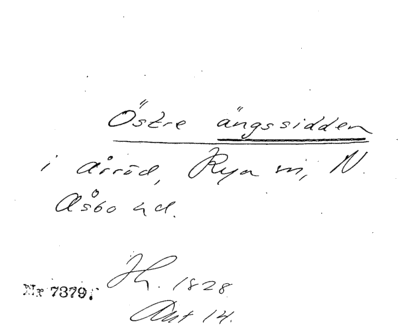 Östre ängssidden
i Årröd, Rya sn, N.
Åsbo hd.
1828
Akt 14.
Nr 7379.